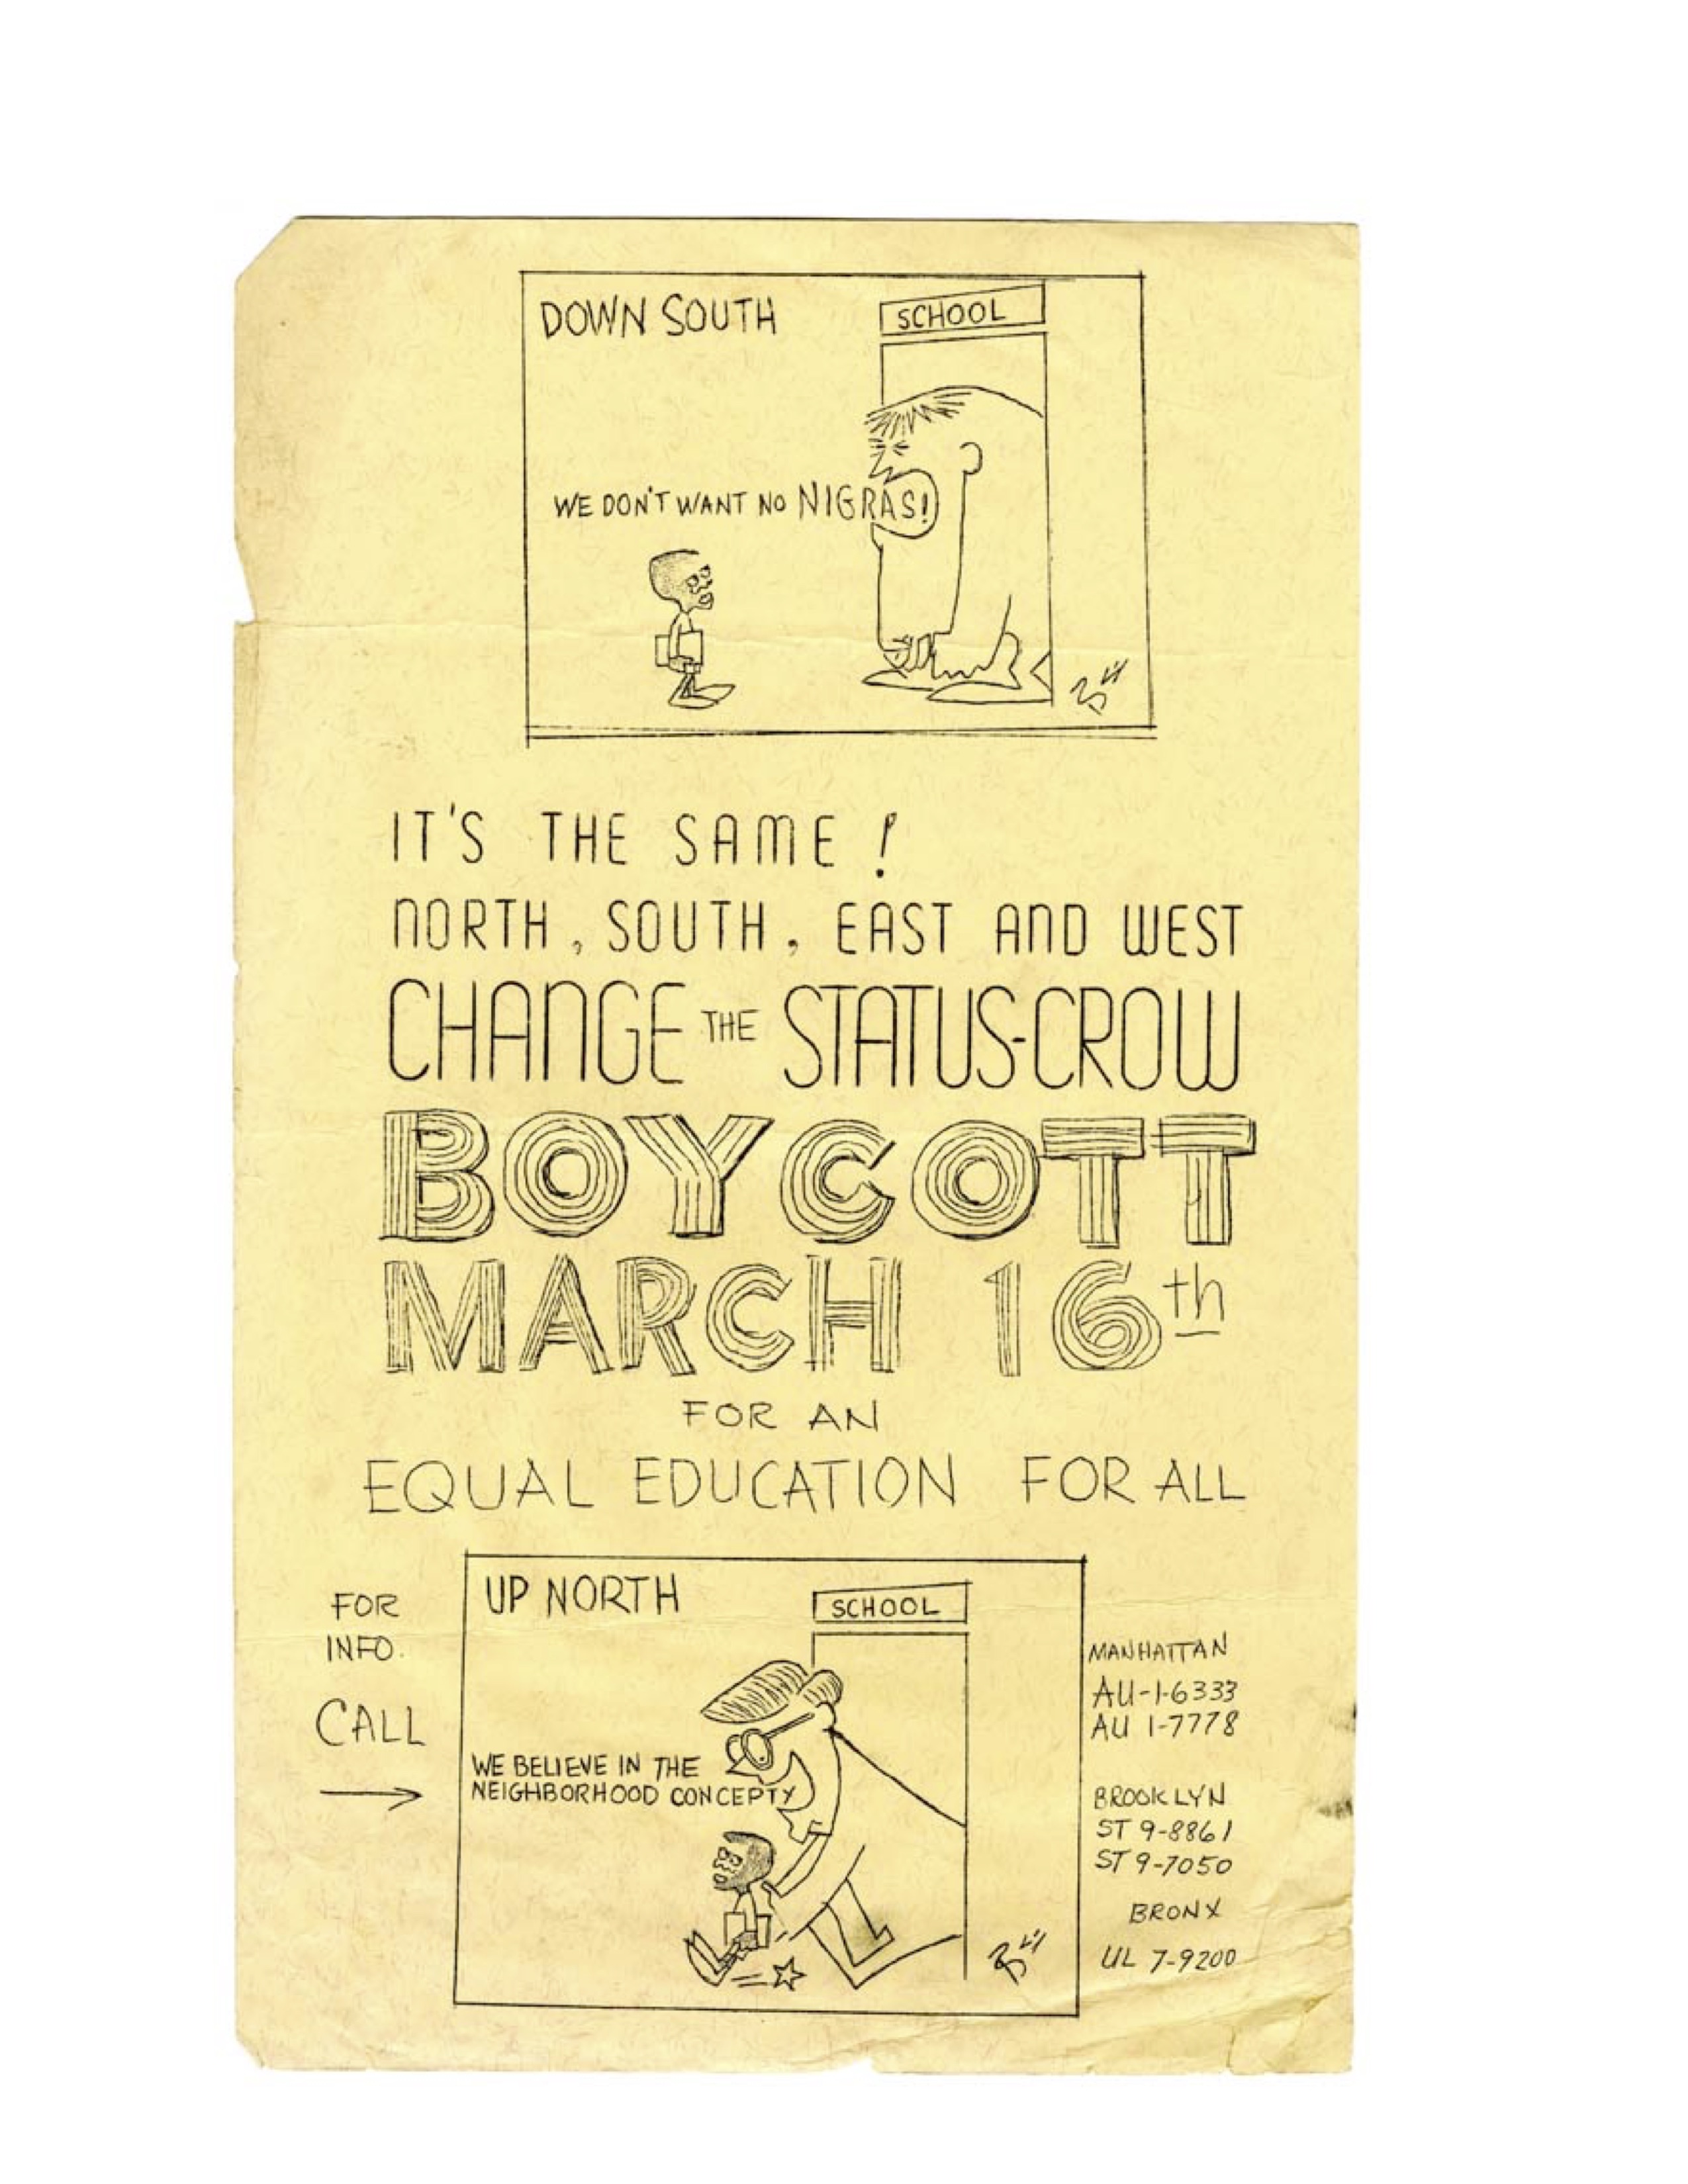 DOWN SOUTH
SCHOOL
WE DON'T WANT NO NIGRAS!
IT'S THE SAME!
NORTH, SOUTH, EAST AND WEST
CHANGE THE STATUS-CROW
BOYCOTT
MARCH 16th
FOR AN
EQUAL EDUCATION FOR ALL
FOR
INFO.
CALL
UP NORTH
SCHOOL
WE BELIEVE IN THE
NEIGHBORHOOD CONCEPT
MANHATTAN
AU-1-6333
AU 1-7778
BROOKLYN
ST 9-8861
ST 9-7050
BRONX
UL 7-9200